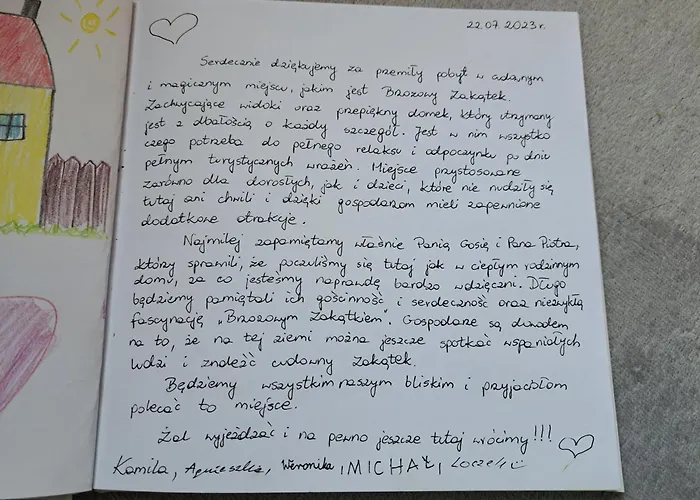 22.07.2023r.
Serdecznie dziękujemy za przemiły pobyt w cudownym
i magicznym miejscu, jakim jest Brzozowy Zakątek.
Zachwycające widoki oraz przepiękny domek, który utrzymany
jest z dbałością o każdy szczegół. Jest w nim wszystko
czego potrzeba do pełnego relaksu i odpoczynku po dniu
pełnym turystycznych wrażeń. Miejsce przystosowane
zarówno dla dorosłych, jak i dzieci, które nie nudziły się
tutaj ani chwili i dzięki gospodarzom mieli zapewnione
dodatkowe atrakcje.
Najmilej zapamiętamy właśnie Panią Gosię i Pana Piotra,
którzy sprawili, że poczuliśmy się tutaj jak w ciepłym rodzinnym
domu, za co jesteśmy naprawdę bardzo wdzięczni. Długo
będziemy pamiętali ich gościnność i serdeczność oraz niezwykłą
fascynację „Brzozowym Zakątkiem". Gospodarze są dowodem
na to, że na tej ziemi można jeszcze spotkać wspaniałych
ludzi i znaleźć cudowny zakątek.
Będziemy wszystkim naszym bliskim i przyjaciołom
polecać to miejsce.
Żal wyjeżdżać i na pewno jeszcze tutaj wrócimy!!!
Kamila, Agnieszka, Weronika, MICHAŁ,